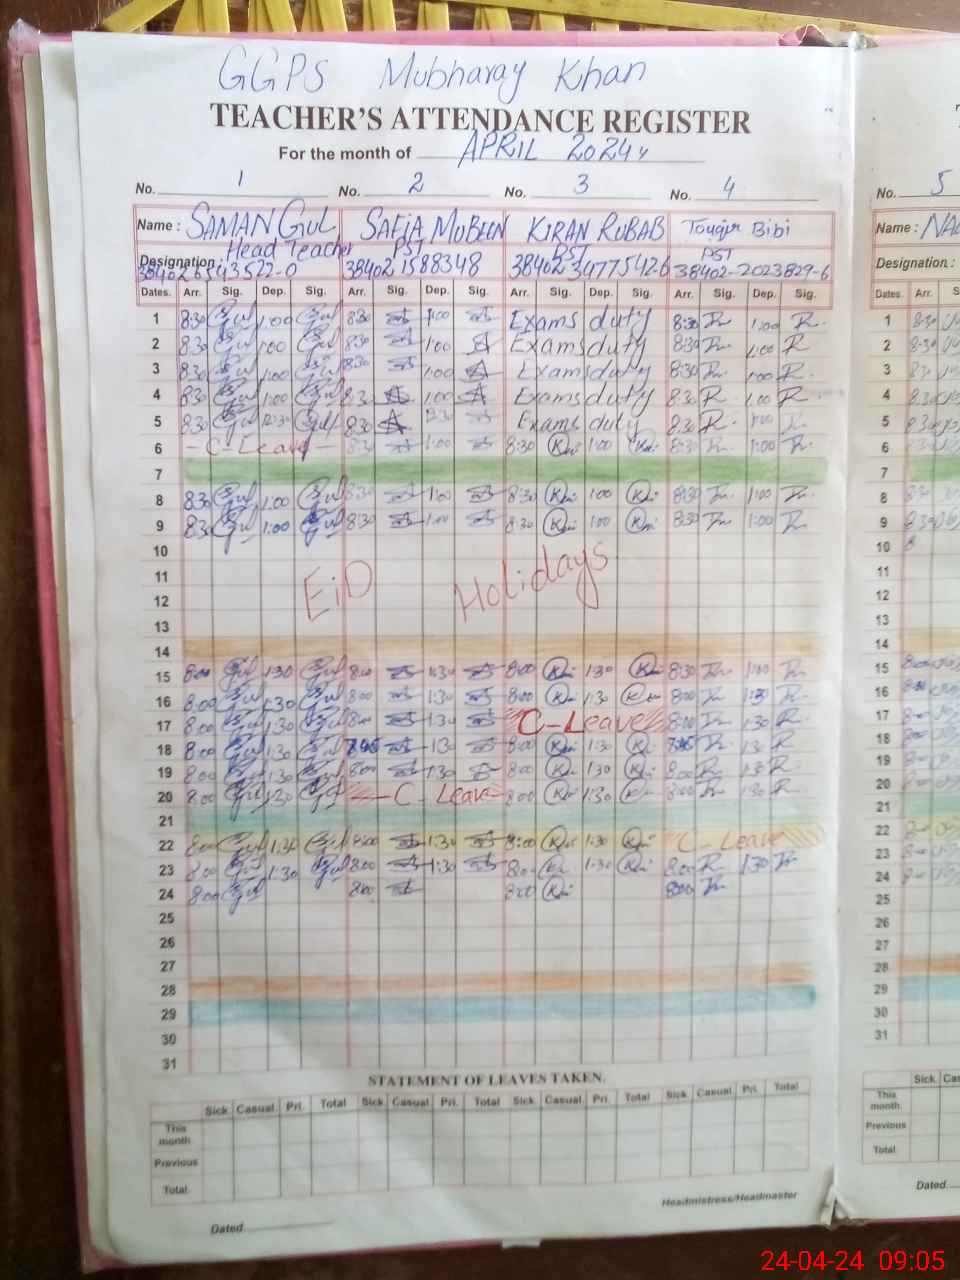 GGPS Mubharay Khan
TEACHER'S ATTENDANCE REGISTER
For the month of APRIL 2024
No. 1 No. 2 No. 3 No. 4 No. 5
Name: SAMAN GUL SAFIA MUBEEN KIRAN RUBAB Bibi
Designation: Head Teacher PST PST PST Designation:
38402 1588348 38402 3477542-6 38402-2023829-6
Dates. Arr. Sig. Dep. Sig. Arr. Sig. Dep. Sig. Arr. Sig. Dep. Sig. Arr. Sig. Dep. Sig. Dates. Arr.
1 8:30 Gul 1:00 Gul 8:30 1:00 Exams duty 8:30 1:00 R. 1
2 8:30 Gul 1:00 Gul 8:30 1:00 Exams duty 8:30 1:00 R 2
3 8:30 Gul 1:00 Gul 8:30 1:00 Exams duty 8:30 R. 1:00 R. 3
4 8:30 Gul 1:00 Gul 8:30 1:00 Exams duty 8:30 R. 1:00 R. 4
5 8:30 Gul 12:30 Gul 8:30 12:30 Exams duty 8:30 R. R. 5
6 - C-Leave - 8:30 1:00 8:30 1:00 8:30 1:00 R. 6
7 7
8 8:30 Gul 1:00 Gul 8:30 1:00 8:30 1:00 8:30 1:00 8
9 8:30 Gul 1:00 Gul 8:30 1:00 8:30 1:00 8:30 1:00 R. 9
10 10
11 11
EiD Holidays
12 12
13 13
14 14
15 8:00 Gul 1:30 Gul 8:00 1:30 8:00 1:30 8:30 1:00 15
16 8:00 Gul 1:30 Gul 8:00 1:30 8:00 1:30 8:00 1:30 R. 16
17 8:00 Gul 1:30 Gul 8:00 1:30 C-Leave 8:00 1:30 R. 17
18 8:00 Gul 1:30 Gul 1:30 8:00 1:30 1:30 R 18
19 8:00 Gul 1:30 Gul 8:00 1:30 8:00 1:30 8:00 R. 1:30 R. 19
20 8:00 Gul 1:30 Gul C-Leave 8:00 1:30 8:00 1:30 R. 20
21 21
22 8:00 Gul 1:30 Gul 8:00 1:30 8:00 1:30 C-Leave 22
23 8:00 Gul 1:30 Gul 8:00 1:30 8:00 1:30 8:00 R. 1:30 23
24 8:00 Gul 8:00 8:00 8:00 24
25 25
26 26
27 27
28 28
29 29
30 30
31 31
STATEMENT OF LEAVES TAKEN.
Sick Casual Pri. Total Sick Casual Pri. Total Sick Casual Pri. Total Sick Casual Pri. Total Sick
This month. This month.
Previous Previous
Total Total
Headmistress/Headmaster
Dated Dated
24-04-24 09:05